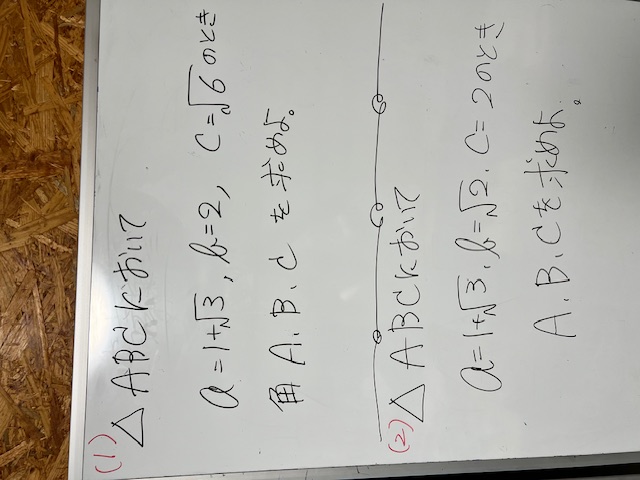 (1)
△ABCにおいて
a=1+√3, b=2, c=√6のとき
角A.B.Cを求めよ。
(2)
△ABCにおいて
a=1+√3. b=√2. c=2のとき
A.B.Cを求めよ。